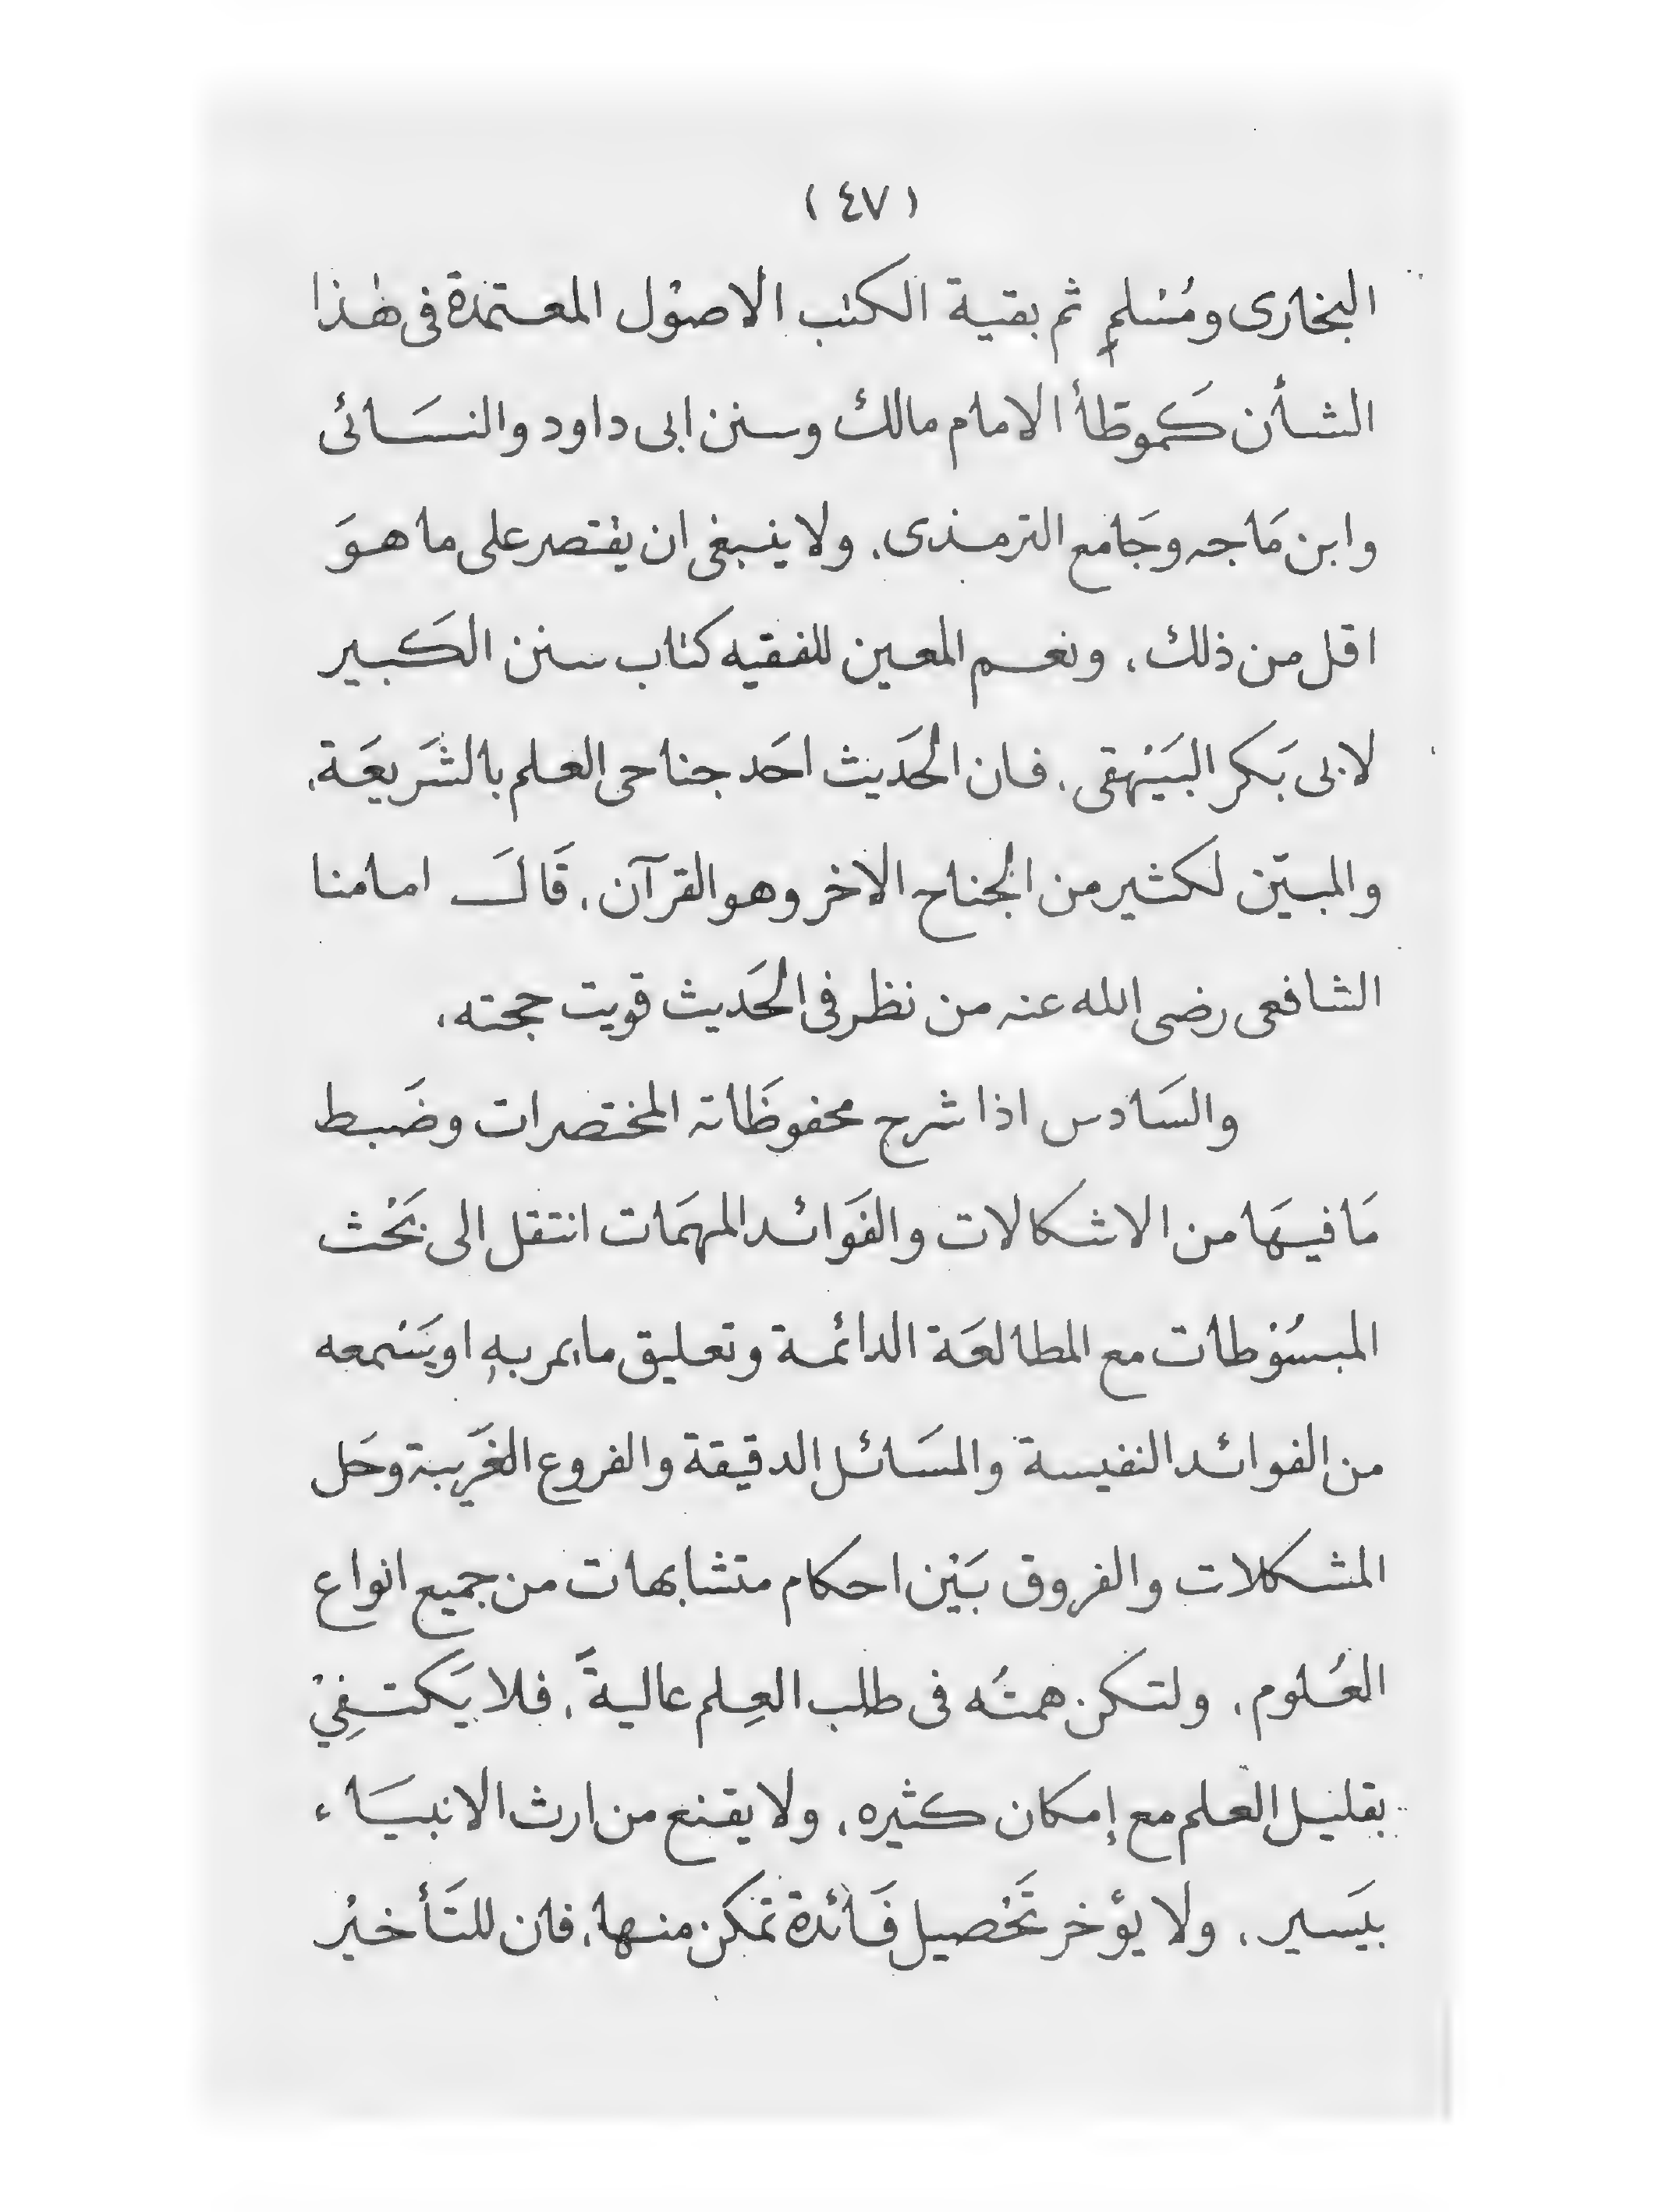 (٤٧)
البخارى ومُسْلمٍ ثم بقية الكتب الاصوْل المعتمدة فى هٰذا
الشأن كَموطّأ الامام مالك وسنن ابى داود والنسَائى
وابن مَاجه وجَامع الترمذى، ولا ينبغى ان يقتصر على ما هوَ
اقل من ذلك، ونعم المعين للفقيه كتاب سنن الكَبير
لابى بَكر البَيْهقى، فان الحَديث احَد جناحى العلم بالشَريعَة،
والمبيّن لكثير من الجناح الاخر وهو القرآن، قَالَ امامنا
الشافعى رضى الله عنه من نظر فى الحَديث قويت حجته،
والسَادس اذا شرح محفوظَاته المختصرات وضَبط
مَا فيهَا من الاشكالات والفَوائد المهمَات انتقل الى بَحْث
المبسُوْطات مع المطالعَة الدائمة وتعليق ما يمر بهِ او يَسْمعه
من الفوائد النفيسة والمسَائل الدقيقة والفروع الغَريبة وحَل
المشكلات والفروق بَيْن احكام متشابهات من جميع انواع
العُلوم، ولتكن همتُه فى طلب العِلم عاليةً، فلا يَكتفِيْ
بقليل العلم مع إمكان كثيره، ولا يقنع من ارث الانبيَاء
بيَسير، ولا يؤخر تَحْصيل فَائدة تمكن منها، فان للتَأخيْر